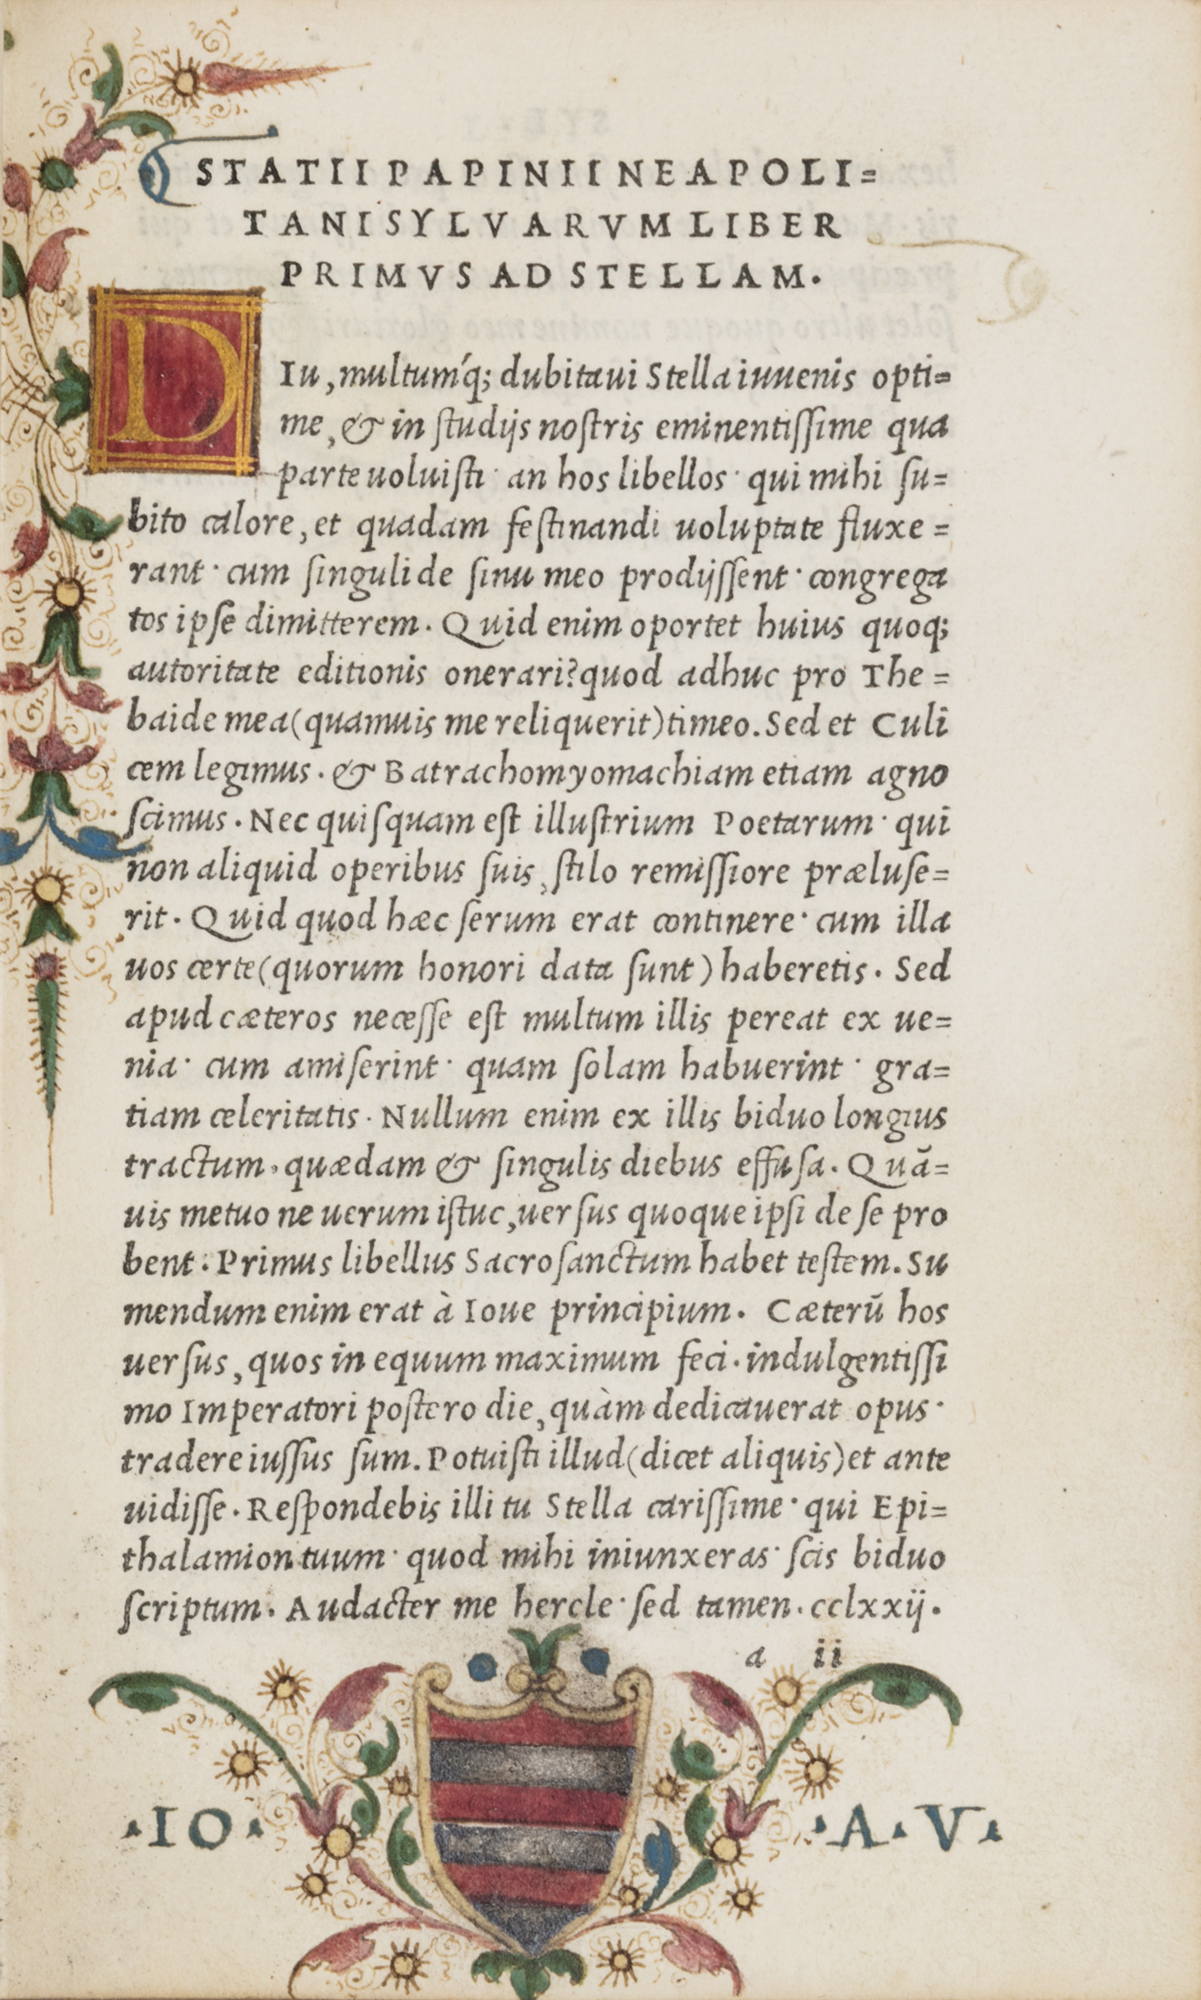 STATII PAPINII NEAPOLI=
TANI SYLVARVM LIBER
PRIMVS AD STELLAM.
DIu, multum´q; dubitaui Stella iuuenis opti=
me, & in ſtudijs noſtris eminentiſſime qua
parte uoluiſti· an hos libellos· qui mihi ſu=
bito calore, et quadam feſtinandi uoluptate fluxe=
rant· cum ſinguli de ſinu meo prodijſſent· congrega
tos ipſe dimitterem. Quid enim oportet huius quoq;
autoritate editionis onerari? quod adhuc pro The=
baide mea (quamuis me reliquerit) timeo. Sed et Culi
cem legimus. & Batrachomyomachiam etiam agno
ſcimus. Nec quiſquam eſt illuſtrium Poetarum· qui
non aliquid operibus ſuis, ſtilo remiſſiore præluſe=
rit. Quid quod hæc ſerum erat continere· cum illa
uos certe (quorum honori data ſunt) haberetis. Sed
apud cæteros neceſſe eſt multum illis pereat ex ue=
nia· cum amiſerint· quam ſolam habuerint· gra=
tiam celeritatis. Nullum enim ex illis biduo longius
tractum, quædam & ſingulis diebus effuſa. Quã=
uis metuo ne uerum iſtuc, uerſus quoque ipſi de ſe pro
bent. Primus libellus Sacroſanctum habet teſtem. Su
mendum enim erat à Ioue principium. Cæterũ hos
uerſus, quos in equum maximum feci. indulgentiſſi
mo Imperatori poſtero die, quàm dedicauerat opus·
tradere iuſſus ſum. Potuiſti illud (dicet aliquis) et ante
uidiſſe. Reſpondebis illi tu Stella cariſſime· qui Epi=
thalamion tuum· quod mihi iniunxeras· ſcis biduo
ſcriptum. Audacter me hercle· ſed tamen. cclxxij.
a ii
·IO· ·A·V·